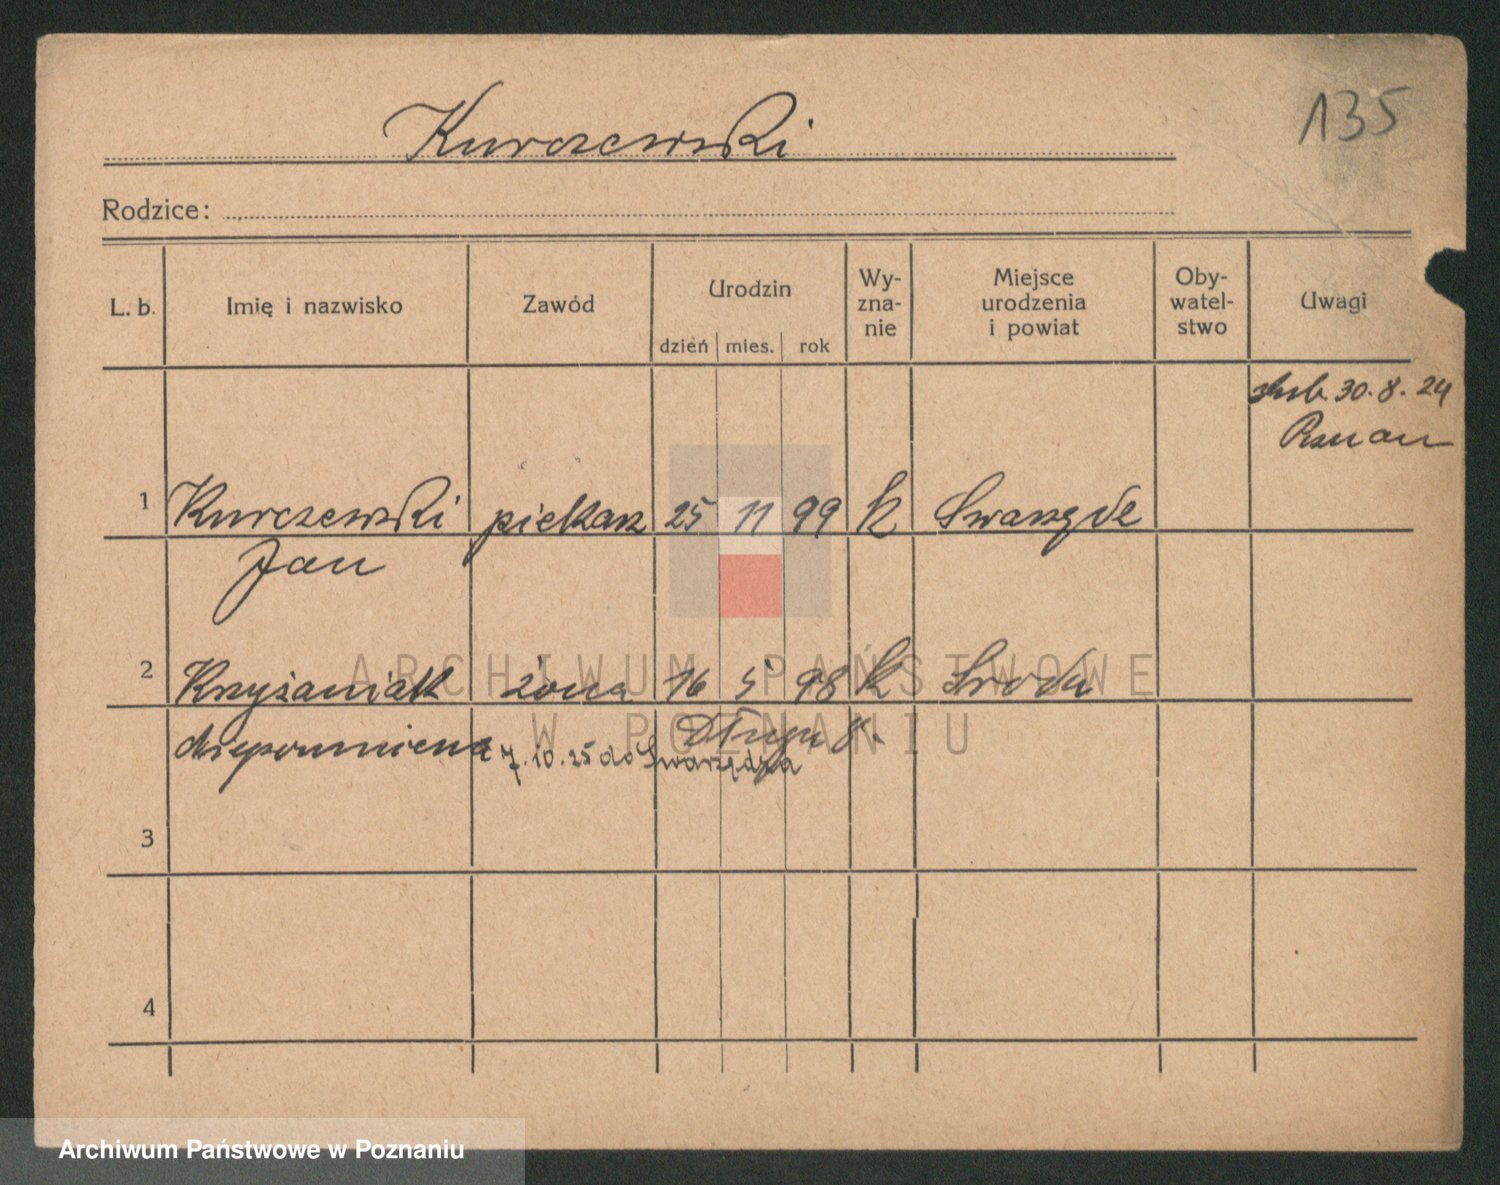 Kurczewski
135
Rodzice:
L. b. Imię i nazwisko Zawód Urodzin dzień mies. rok Wy-zna-nie Miejsce urodzenia i powiat Oby-watel-stwo Uwagi
ślub. 30.8.24
Poznań
1 Kurczewski piekarz 25 11 99 k Swarzędz
Jan
2 Krzyżaniak żona 16 5 98 k Środa
Niepomucena Długa 8.
7.10.25 do Swarzędza
3
4
ARCHIWUM PAŃSTWOWE
W POZNANIU
Archiwum Państwowe w Poznaniu